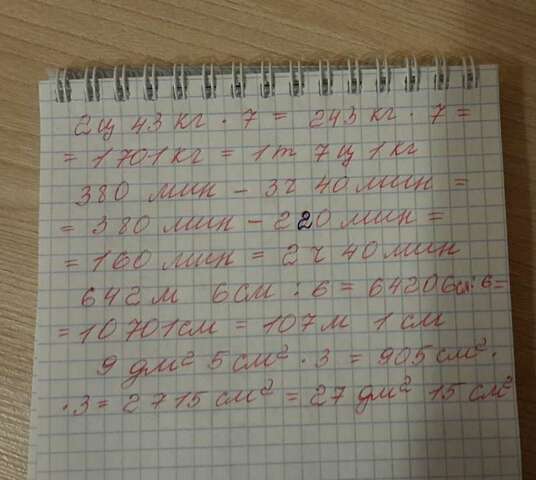 2ц 43 кг · 7 = 243 кг · 7 =
= 1701 кг = 1т 7ц 1 кг
380 мин - 3ч 40 мин =
= 380 мин - 220 мин =
= 160 мин = 2ч 40 мин
642 м 6 см : 6 = 64206 см : 6 =
= 10701 см = 107 м 1 см
9 дм² 5 см² · 3 = 905 см² ·
· 3 = 2715 см² = 27 дм² 15 см²